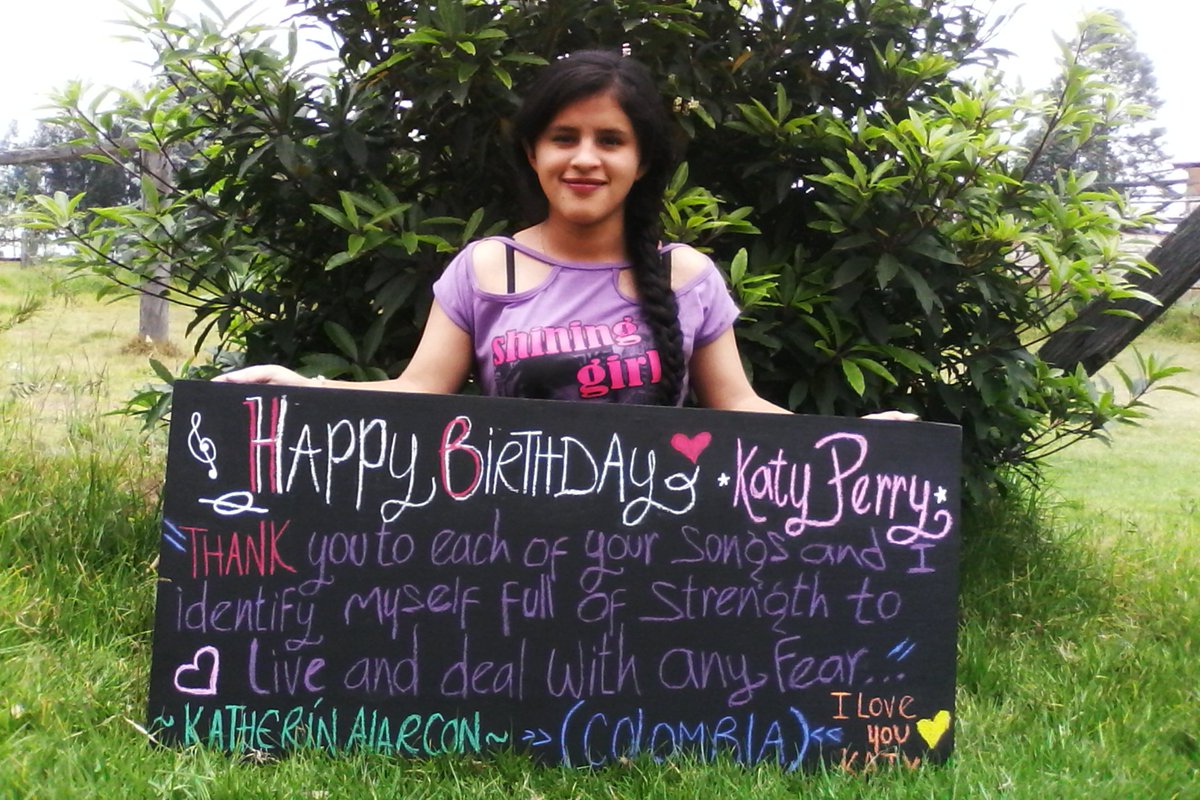 shining
girl
Happy Birthday *Katy Perry*
"THANK you to each of your songs and I
identify myself full of strength to
Live and deal with any fear..."
~KATHERÍN AlARCON~ >>(COLOMBIA)<<
I LOVE
you
KATY